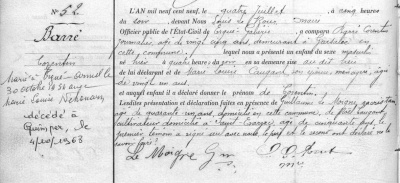 N° 52
Barré
Corentin
Marié à Ergué-Armel le
30 octobre 1934 avec
Marie Louise
décédé à
Quimper, le
4/10/1968
L'AN mil neuf cent neuf, le quatre juillet, à cinq heures
du soir, devant Nous Louis Le maire
Officier public de l'État-Civil de Ergué-Gabéric, a comparu Barré Corentin
journalier, âgé de vingt cinq ans, demeurant à
cette commune, lequel nous a présenté un enfant du sexe masculin
né hier à quatre heures du soir en sa demeure au dit lieu
de lui déclarant et de Marie Louise son épouse ménagère, âgée
de vingt un ans
et auquel enfant il a déclaré donner le prénom de Corentin.
Lesdites présentation et déclaration faites en présence de Guillaume Le Moigne, sacristain
âgé de quarante cinq ans, domicilié en cette commune, et de
cultivateur domicilié à Saint Évarzec âgé de cinquante ans. Le
premier témoin a signé seul avec nous le père et le second ont déclaré ne le
savoir faire.
Le Moigne Gm